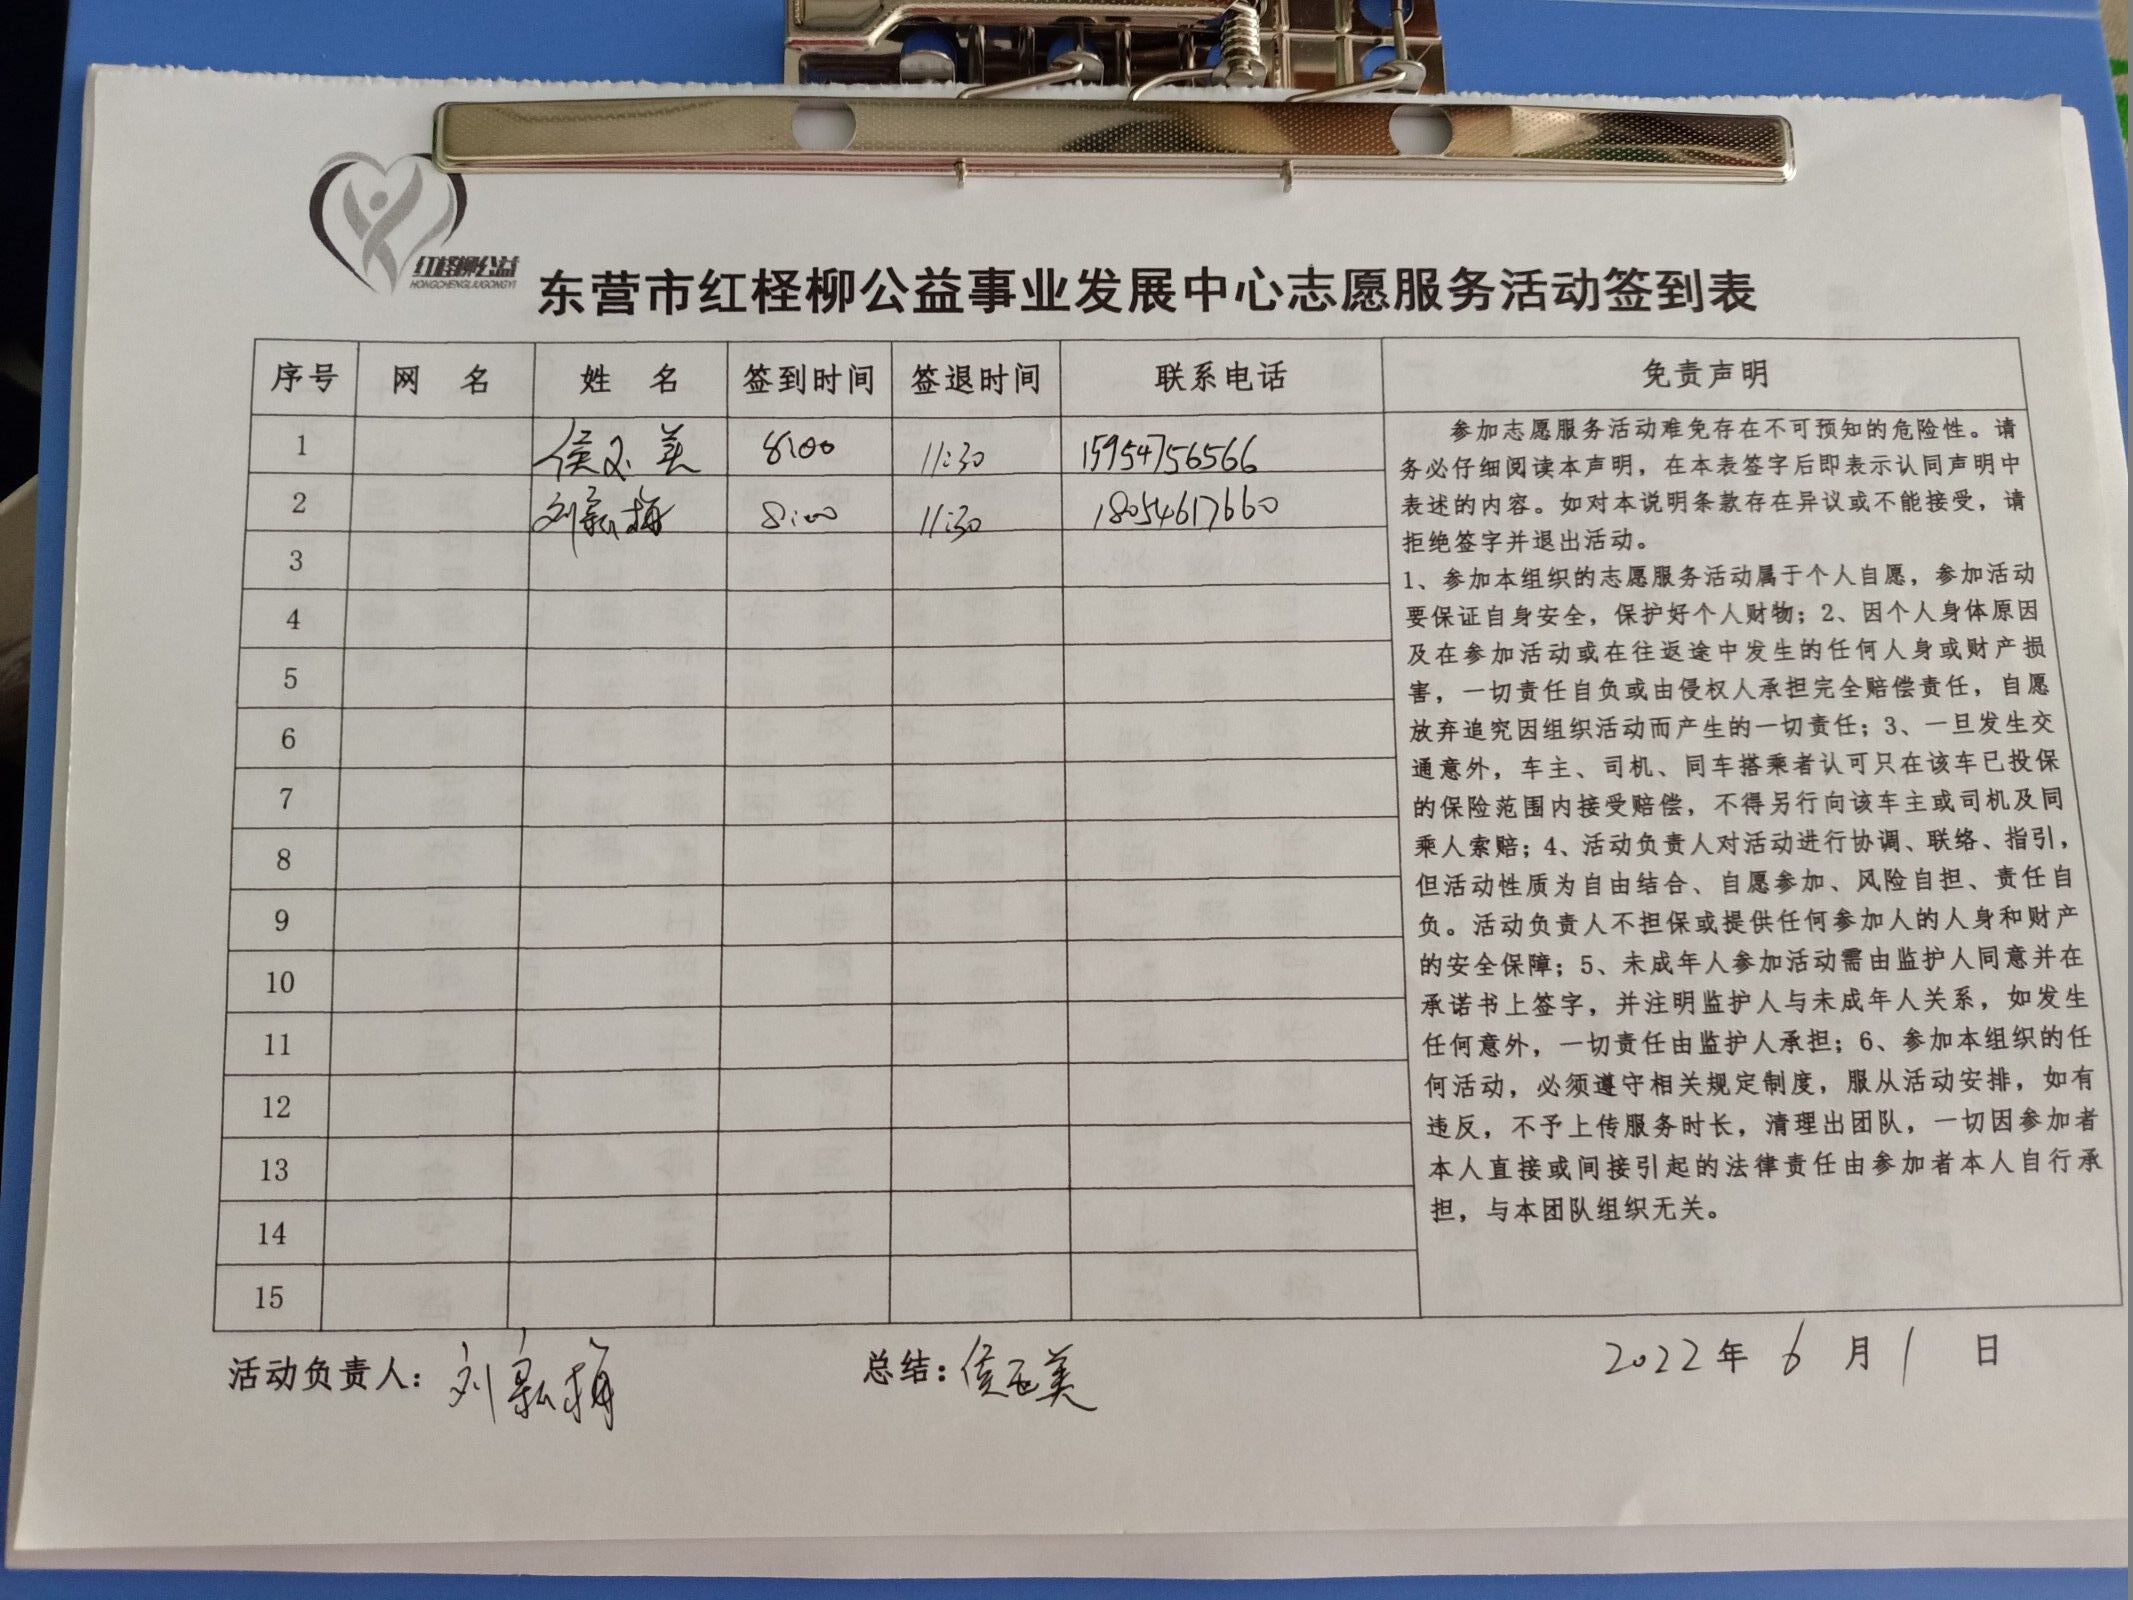 红柽柳公益
HONGCHENGLIUGONGYI
东营市红柽柳公益事业发展中心志愿服务活动签到表
序号 网 名 姓 名 签到时间 签退时间 联系电话 免责声明
1 侯玉美 8:00 11:30 15954756566
2 刘新梅 8:00 11:30 18054617660
3
4
5
6
7
8
9
10
11
12
13
14
15
参加志愿服务活动难免存在不可预知的危险性。请
务必仔细阅读本声明，在本表签字后即表示认同声明中
表述的内容。如对本说明条款存在异议或不能接受，请
拒绝签字并退出活动。
1、参加本组织的志愿服务活动属于个人自愿，参加活动
要保证自身安全，保护好个人财物；2、因个人身体原因
及在参加活动或在往返途中发生的任何人身或财产损
害，一切责任自负或由侵权人承担完全赔偿责任，自愿
放弃追究因组织活动而产生的一切责任；3、一旦发生交
通意外，车主、司机、同车搭乘者认可只在该车已投保
的保险范围内接受赔偿，不得另行向该车主或司机及同
乘人索赔；4、活动负责人对活动进行协调、联络、指引，
但活动性质为自由结合、自愿参加、风险自担、责任自
负。活动负责人不担保或提供任何参加人的人身和财产
的安全保障；5、未成年人参加活动需由监护人同意并在
承诺书上签字，并注明监护人与未成年人关系，如发生
任何意外，一切责任由监护人承担；6、参加本组织的任
何活动，必须遵守相关规定制度，服从活动安排，如有
违反，不予上传服务时长，清理出团队，一切因参加者
本人直接或间接引起的法律责任由参加者本人自行承
担，与本团队组织无关。
活动负责人：刘新梅 总结：侯玉美 2022年 6 月 1 日